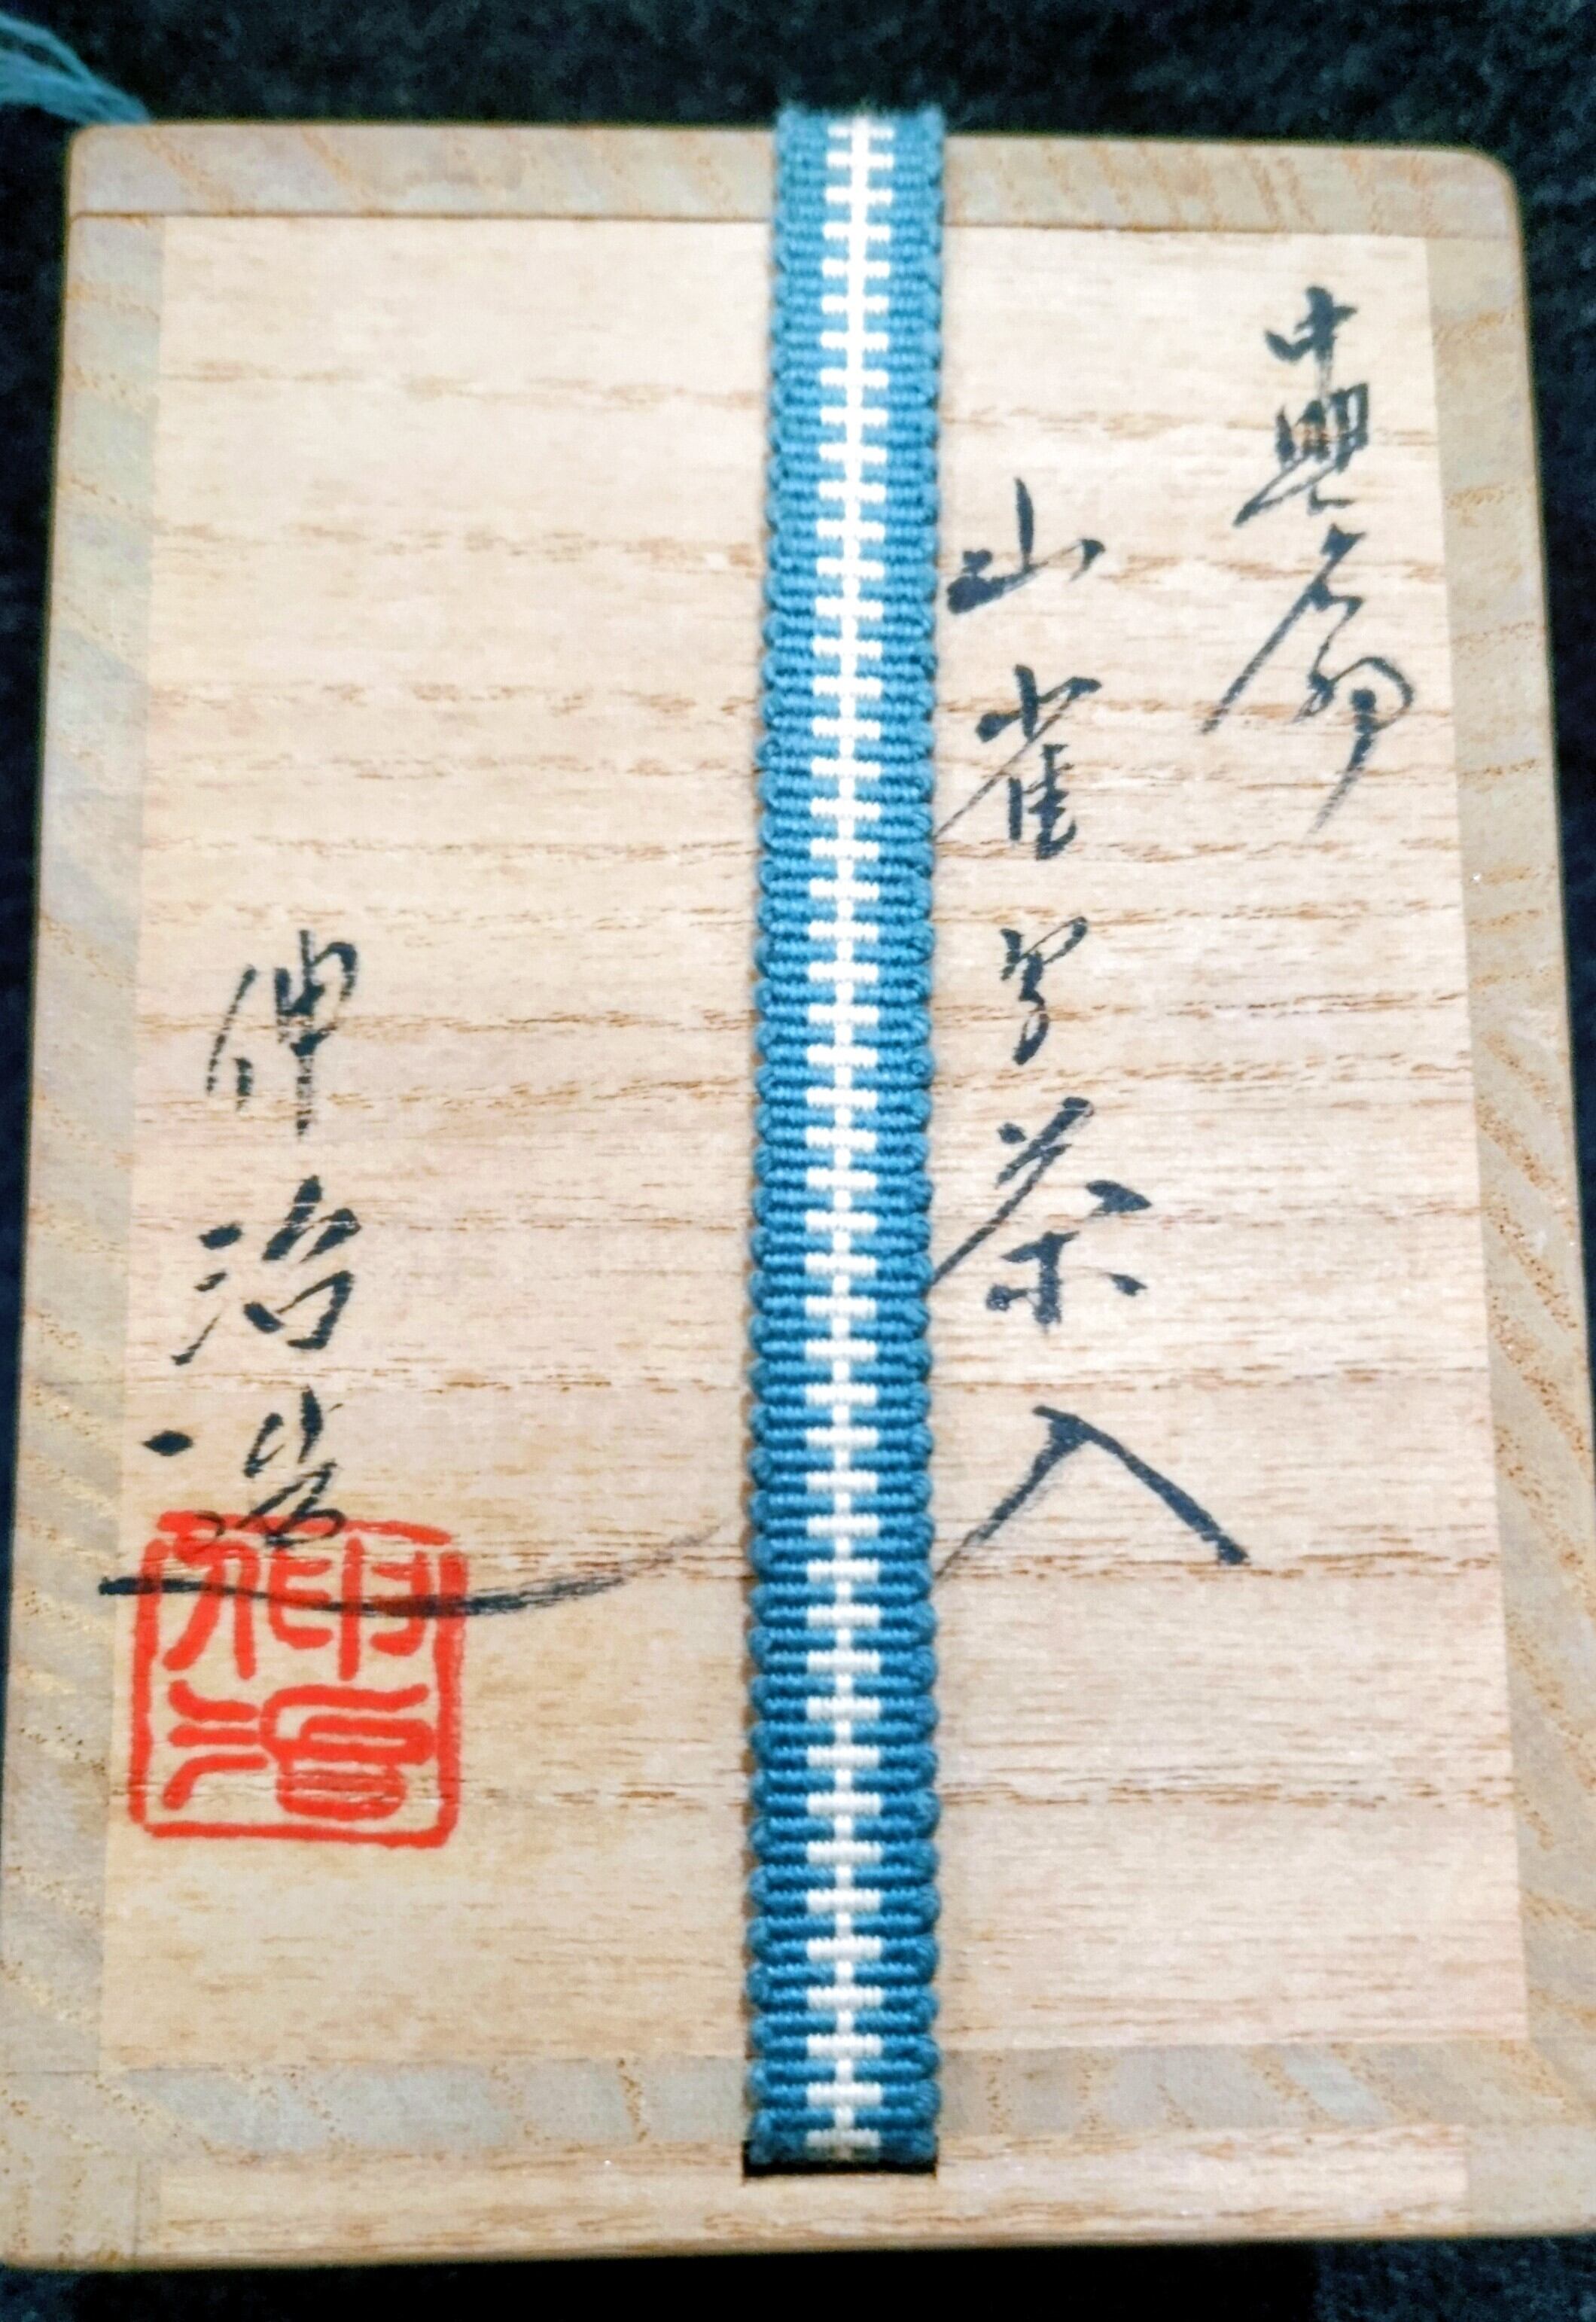 中興名物
山雀写茶入
伸治造
伸治